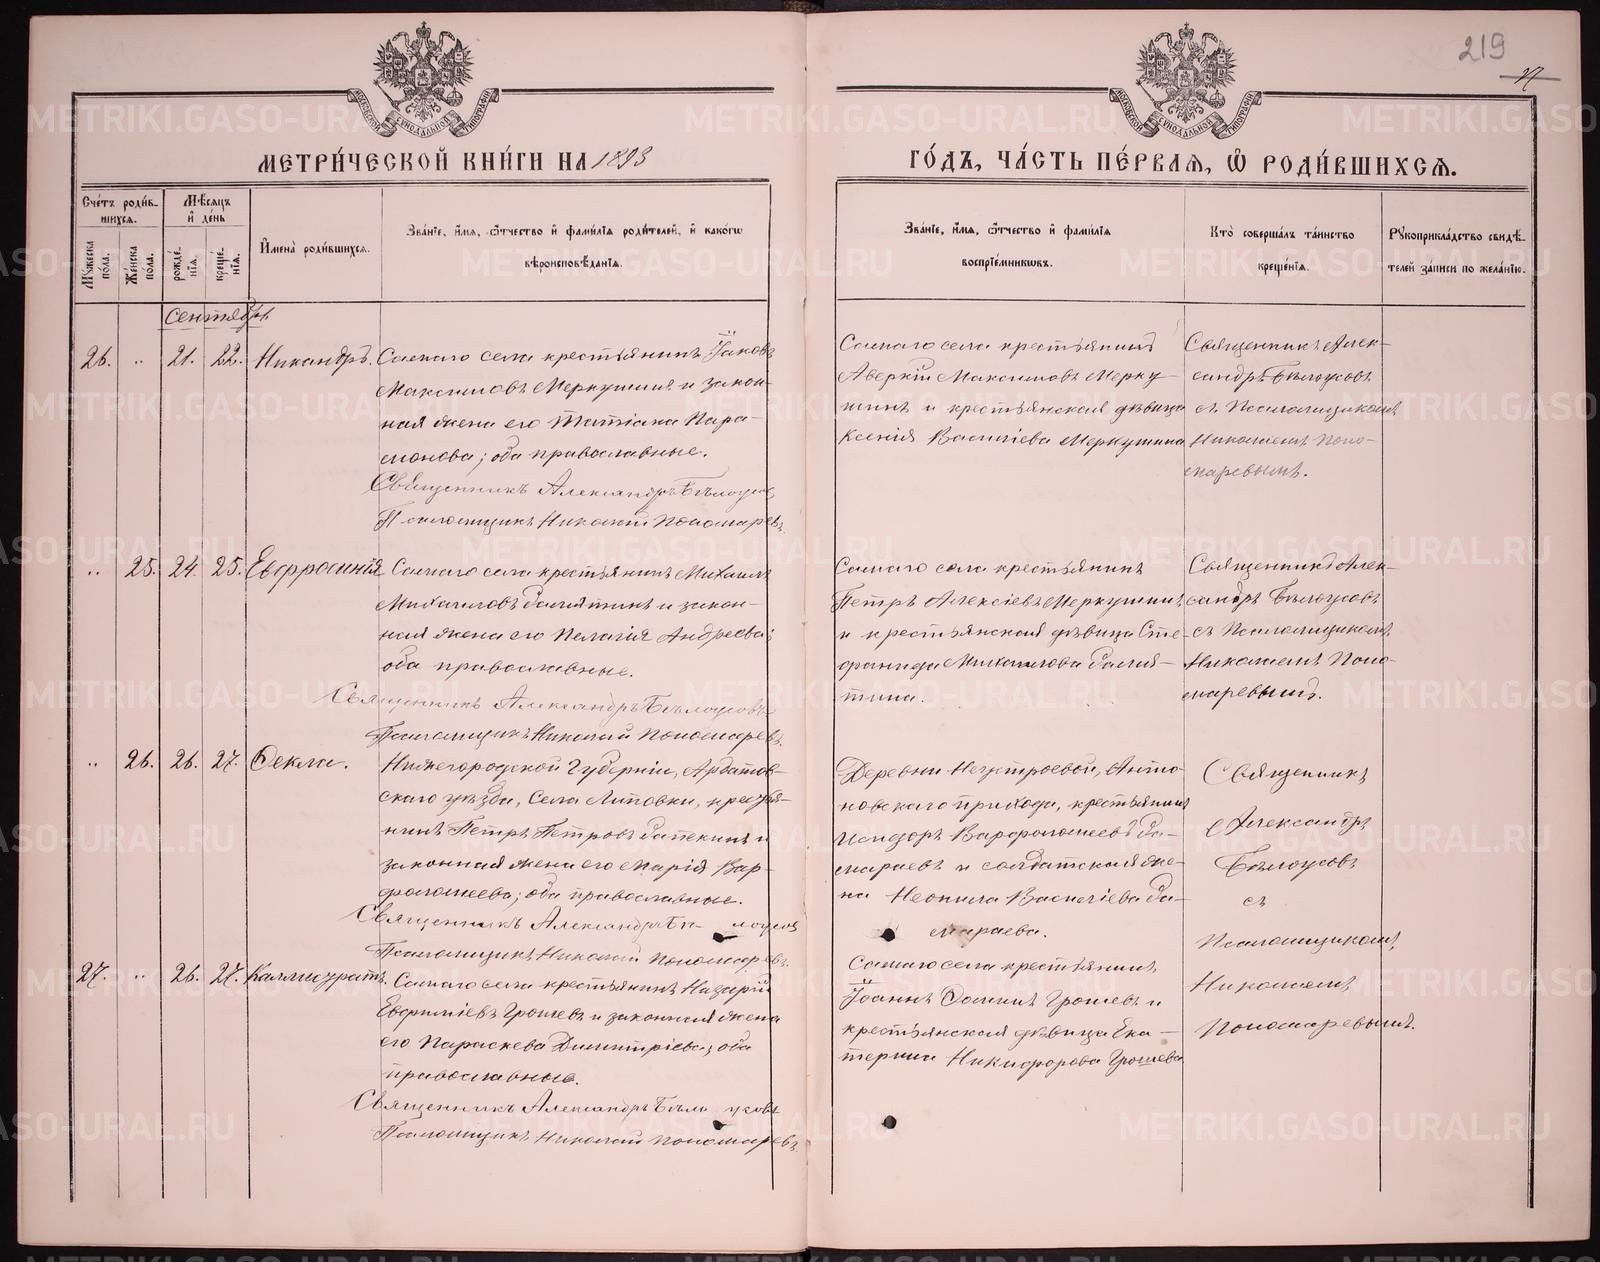 219
МЕТРИ́ЧЕСКОЙ КНИ́ГИ НА 1893
ГО́ДЪ, ЧА́СТЬ ПЕ́РВАЯ, Ѽ РОДИ́ВШИХСЯ.
Сче́тъ роди́в-
шихся.
Му́жеска по́ла.
Же́нска по́ла.
Мѣ́сяцъ
и де́нь
рожде́нія.
креще́нія.
Имена̀ роди́вшихся.
Зва́ніе, и́мя, ѻ҆́тчество и фами́лія роди́телей, и како́гѡ
вѣроисповѣ́данія.
Зва́ніе, и́мя, ѻ҆́тчество и фами́лія
воспріе́мниковъ.
Кто̀ соверша́лъ та́инство
креще́нія.
Рукоприкла́дство свидѣ́-
телей за́писи по жела́нію.
Сентябрь
26. " 21. 22. Никандръ.
Самаго села крестьянинъ Іаковъ
Максимовъ Меркушинъ и закон-
ная жена его Татіана Пара-
монова; оба православные.
Священникъ Александръ Бѣлоусовъ
Псаломщикъ Николай Пономаревъ.
Самаго села крестьянинъ
Аверкій Максимовъ Мерку-
шинъ и крестьянская дѣвица
Ксенія Василіева Меркушина
Священникъ Алек-
сандръ Бѣлоусовъ
съ Псаломщикомъ
Николаемъ Поно-
маревымъ.
" 25. 24. 25. Евфросинія
Самаго села крестьянинъ Михаилъ
Михаиловъ Замятинъ и закон-
ная жена его Пелагія Андреева;
оба православные.
Священникъ Александръ Бѣлоусовъ
Псаломщикъ Николай Пономаревъ.
Самаго села крестьянинъ
Петръ Алексіевъ Меркушинъ
и крестьянская дѣвица Сте-
фанида Михаилова Замя-
тина.
Священникъ Алек-
сандръ Бѣлоусовъ
съ Псаломщикомъ
Николаемъ Поно-
маревымъ.
" 26. 26. 27. Ѳекла.
Нижегородской Губерніи, Ардатов-
скаго уѣзда, Села Липовки, крестья-
нинъ Петръ Петровъ и
законная жена его Марія Вар-
фоломеева; оба православные.
Священникъ Александръ Бѣлоусовъ
Псаломщикъ Николай Пономаревъ.
Деревни Неустроевой, Анто-
новскаго прихода, крестьянинъ
Исидоръ Варфоломеевъ За-
мараевъ и солдатская же-
на Неонила Василіева За-
мараева.
Священникъ
Александръ
Бѣлоусовъ
съ
Псаломщикомъ
Николаемъ
Пономаревымъ.
27. " 26. 27. Каллистратъ.
Самаго села крестьянинъ Назарій
Евфиміевъ Грошевъ и законная жена
его Параскева Димитріева; оба
православные.
Священникъ Александръ Бѣлоусовъ
Псаломщикъ Николай Пономаревъ.
Самаго села крестьянинъ
Іоаннъ Ѳоминъ Грошевъ и
крестьянская дѣвица Ека-
терина Никифорова Грошева